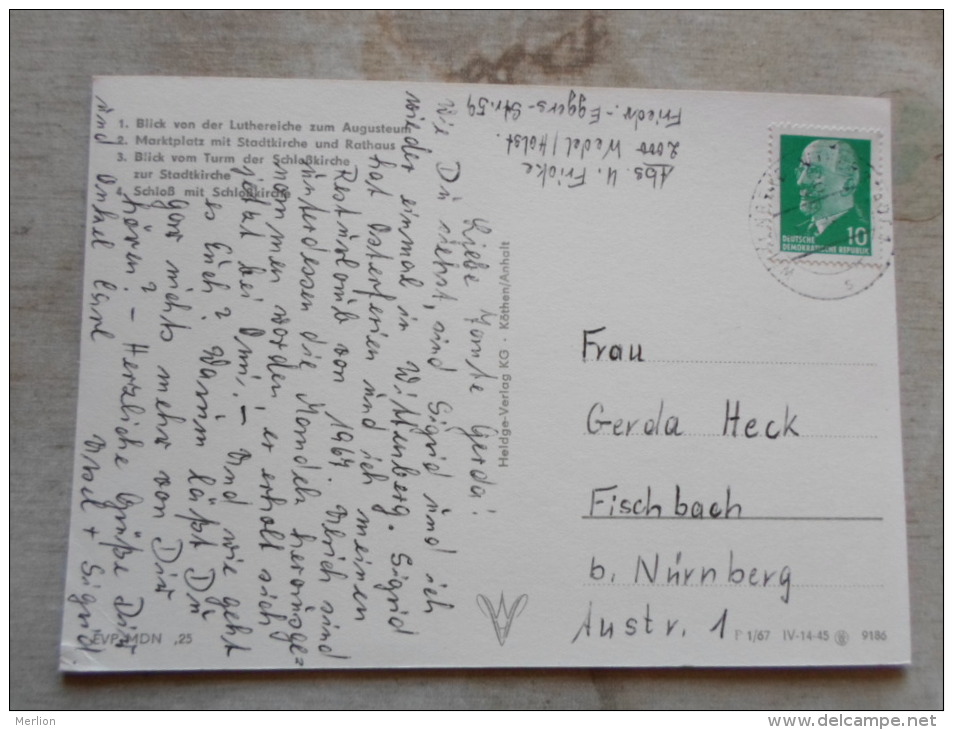 1. Blick von der Luthereiche zum Augusteum
2. Marktplatz mit Stadtkirche und Rathaus
3. Blick vom Turm der Schloßkirche
zur Stadtkirche
4. Schloß mit Schloßkirche
Abs. U. Fricke
2000 Wedel/Holst.
Friedr.-Eggers-Str. 59
Liebe Tante Gerda!
Wie Du siehst, sind Sigrid und ich
wieder einmal in Wittenberg. Sigrid
hat Osterferien und ich meinen
Resturlaub von 1967.
unterdessen die herausge=
nommen worden, er erholt sich
jetzt bei Omi. – Und wie geht
es Euch? Warum läßt Du
gar nichts mehr von Dir
hören? – Herzliche Grüße Dir
und Onkel Carl
Ursel + Sigrid.
Heldge-Verlag KG · Köthen/Anhalt
DEUTSCHE
DEMOKRATISCHE REPUBLIK
10
Frau
Gerda Heck
Fischbach
b. Nürnberg
Austr. 1
EVP MDN ,25
P 1/67 IV-14-45 9186
Merlion
www.delcampe.net